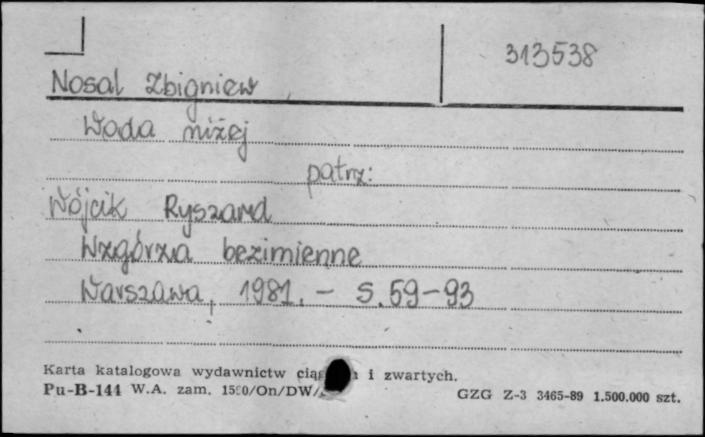 313538
Nosal Zbigniew
Woda niżej
patrz:
Wójcik Ryszard
Wzgórza bezimienne
Warszawa, 1981. - S. 59-93
Karta katalogowa wydawnictw i zwartych.
Pu-B-144 W.A. zam. /On/DW/
GZG Z-3 3465-89 1.500.000 szt.